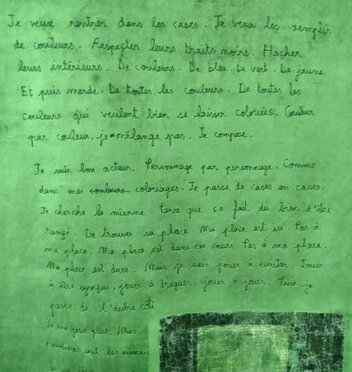 Je veux rentrer dans les cases. Je veux les remplir
de couleurs. Respecter leurs traits noirs. Hacher
leurs intérieurs. De couleurs. De bleu. De vert. De jaune.
Et puis merde. De toutes les couleurs. De toutes les
couleurs qui veulent bien se laisser colorier. Couleur
par couleur, je mélange pas. Je compose.
Je suis bon acteur. Personnage par personnage. Comme
dans mes couleurs coloriages. Je passe de cases en cases.
Je cherche la mienne. Parce que ça fait du bien d'être
rangé. De trouver sa place. Ma place est ici. Pas à
ma place. Ma place est dans ces murs. Pas à ma place.
Ma place est dure. Mais je sais jouer à exister. Jouer
à être sympa, jouer à draguer, jouer à jouer. Puis je
passe de l'autre côté.
Je ne joue plus. Mes
émotions sont les miennes